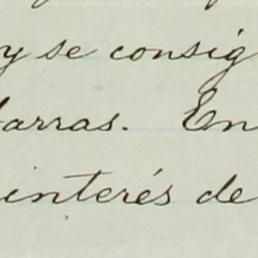 y se consig
barras. En
interés de